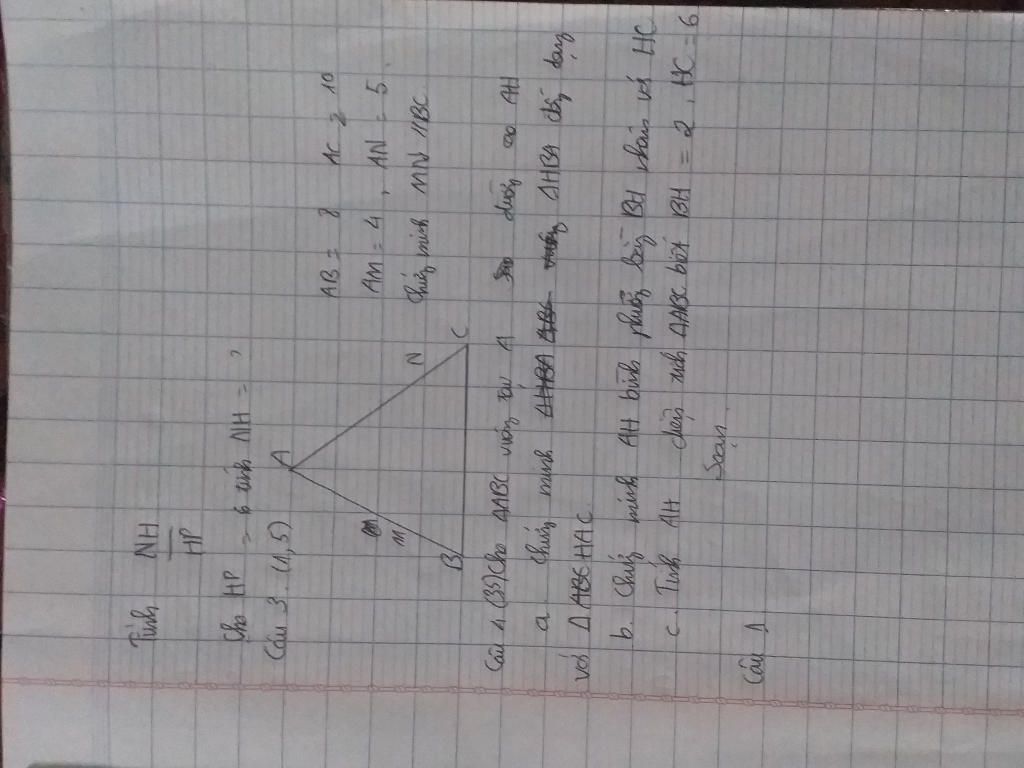 Tính NH
HP
Cho HP = 6 tính NH = ?
Câu 3. (1,5)
A
M
N
B
C
AB = 8 AC = 10
AM = 4, AN = 5.
Chứng minh MN // BC.
Câu 4 (3đ) Cho ΔABC vuông tại A đường cao AH
a chứng minh ΔHBA đồng dạng
với Δ HAC
b. Chứng minh AH bình phương bằng BH nhân với HC
c. Tính AH diện tích ΔABC biết BH = 2, HC = 6
Soạn.
Câu 1